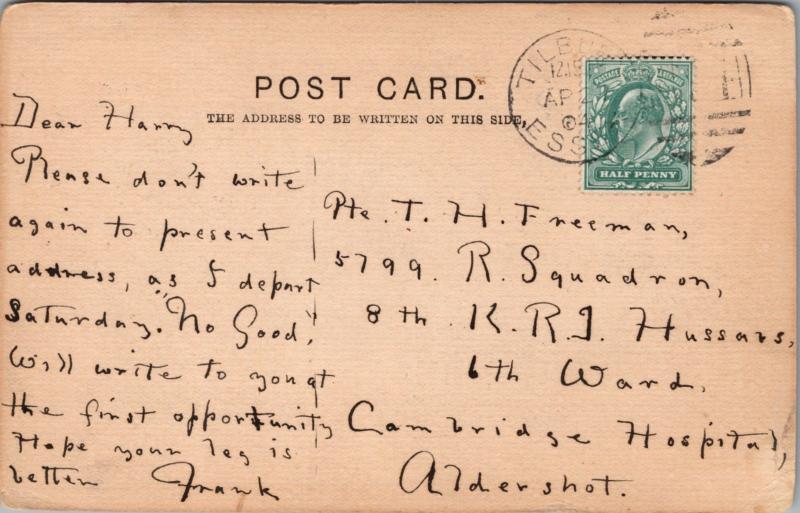 POST CARD.
THE ADDRESS TO BE WRITTEN ON THIS SIDE,
HALF PENNY
Dear Harry
Please don't write
again to present
address, as I depart
Saturday. "No Good,"
Will write to you at
the first opportunity
Hope your leg is
better Frank
Pte. T. H. Freeman,
5799. R. Squadron,
8th K. R. I. Hussars,
6th Ward,
Cambridge Hospital,
Aldershot.